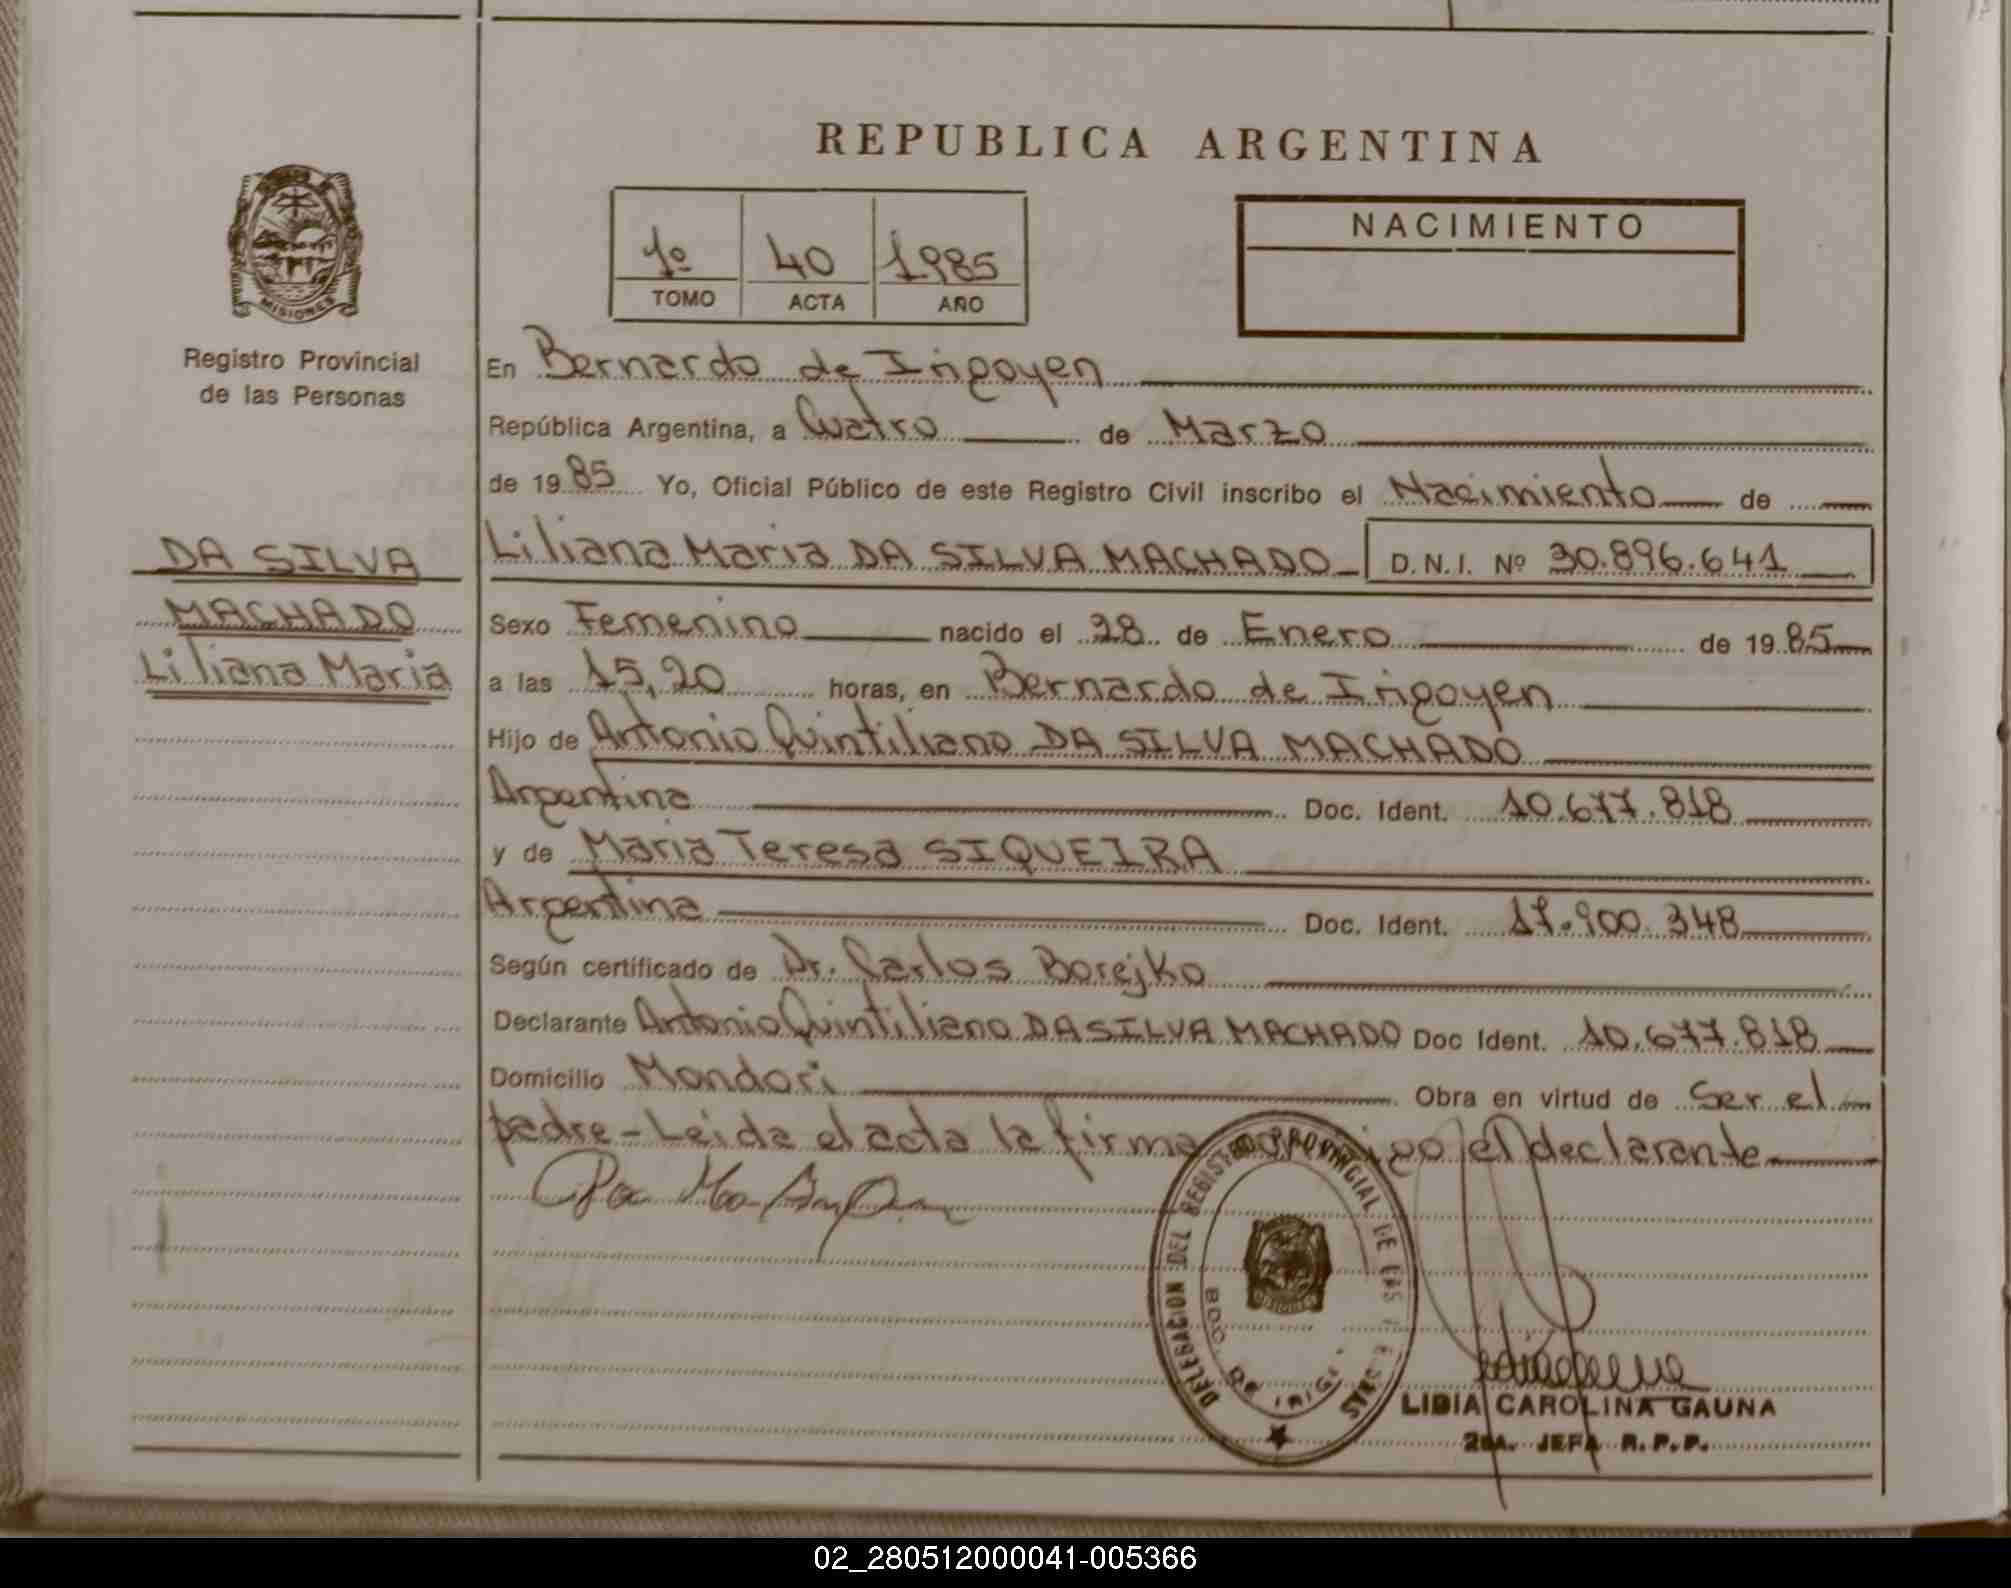 REPUBLICA ARGENTINA
MISIONES
Registro Provincial
de las Personas
DA SILVA
MACHADO
Liliana Maria
1º 40 1985
TOMO ACTA AÑO
NACIMIENTO
En Bernardo de Irigoyen
República Argentina, a Cuatro de Marzo
de 1985 Yo, Oficial Público de este Registro Civil inscribo el Nacimiento de
Liliana Maria DA SILVA MACHADO D.N.I. Nº 30.896.641
Sexo Femenino nacido el 28 de Enero de 1985
a las 15,20 horas, en Bernardo de Irigoyen
Hijo de Antonio Quintiliano DA SILVA MACHADO
Argentina Doc. Ident. 10.677.818
y de Maria Teresa SIQUEIRA
Argentina Doc. Ident. 17.900.348
Según certificado de Dr. Carlos Borejko
Declarante Antonio Quintiliano DA SILVA MACHADO Doc Ident. 10.677.818
Domicilio Mondori Obra en virtud de Ser el
padre - Leida el acta la firma conmigo el declarante
DELEGACION DEL REGISTRO PROVINCIAL DE LAS PERSONAS
BDO. DE IRIG.
MISIONES
LIDIA CAROLINA GAUNA
2da. JEFA R.P.P.
02_280512000041-005366